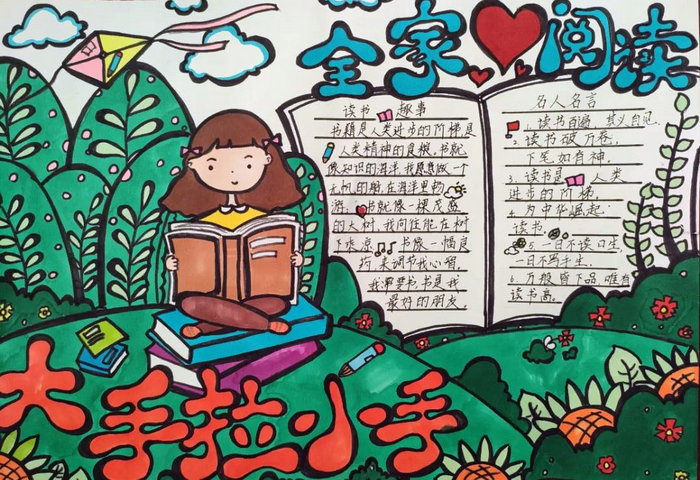 全家阅读
读书 趣事
书籍是人类进步的阶梯是
人类精神的良粮.书就
像知识的海洋.我愿意做一个
无帆的船.在海洋里畅
游. 书就像一棵茂盛
的大树.我向往能在树
下乘凉 书像一幅良
药 来调节我心智.
我需要书.书是我
最好的朋友
名人名言
1.读书百遍 其义自见.
2.读书破万卷,
下笔如有神.
3.读书是 人类
进步的阶梯
4.为中华崛起
读书.
5.一日不读口生
一日不写手生.
6.万般皆下品.唯有
读书高.
大手拉小手